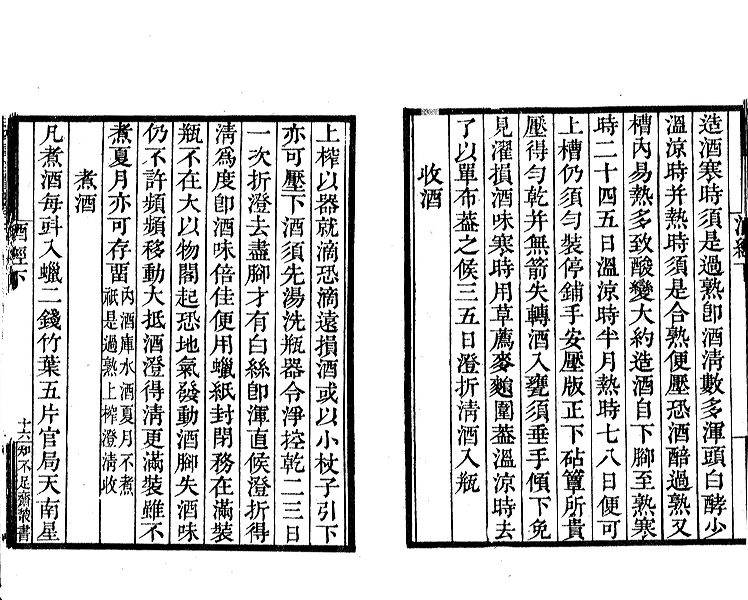 造酒寒時須是過熟卽酒清數多渾頭白酵少
溫涼時并熱時須是合熟便壓恐酒醅過熟又
槽內易熱多致酸變大約造酒自下腳至熟寒
時二十四五日溫涼時半月熱時七八日便可
上槽仍須勻裝停鋪手安壓版正下砧簟所貴
壓得勻乾并無箭失轉酒入甕須垂手傾下免
見濯損酒味寒時用草薦麥䴬圍蓋溫涼時去
了以單布蓋之候三五日澄折清酒入瓶
收酒
上榨以器就滴恐滴遠損酒或以小杖子引下
亦可壓下酒須先湯洗瓶器令淨控乾二三日
一次折澄去盡腳才有白絲卽渾直候澄折得
清爲度卽酒味倍佳便用蠟紙封閉務在滿裝
瓶不在大以物閣起恐地氣發動酒腳失酒味
仍不許頻頻移動大抵酒澄得清更滿裝雖不
煮夏月亦可存留內酒庫水酒夏月不煮
祇是過熟上榨澄清收
煮酒
凡煮酒每㪷入蠟二錢竹葉五片官局天南星
酒經下
十六
知不足齋叢書